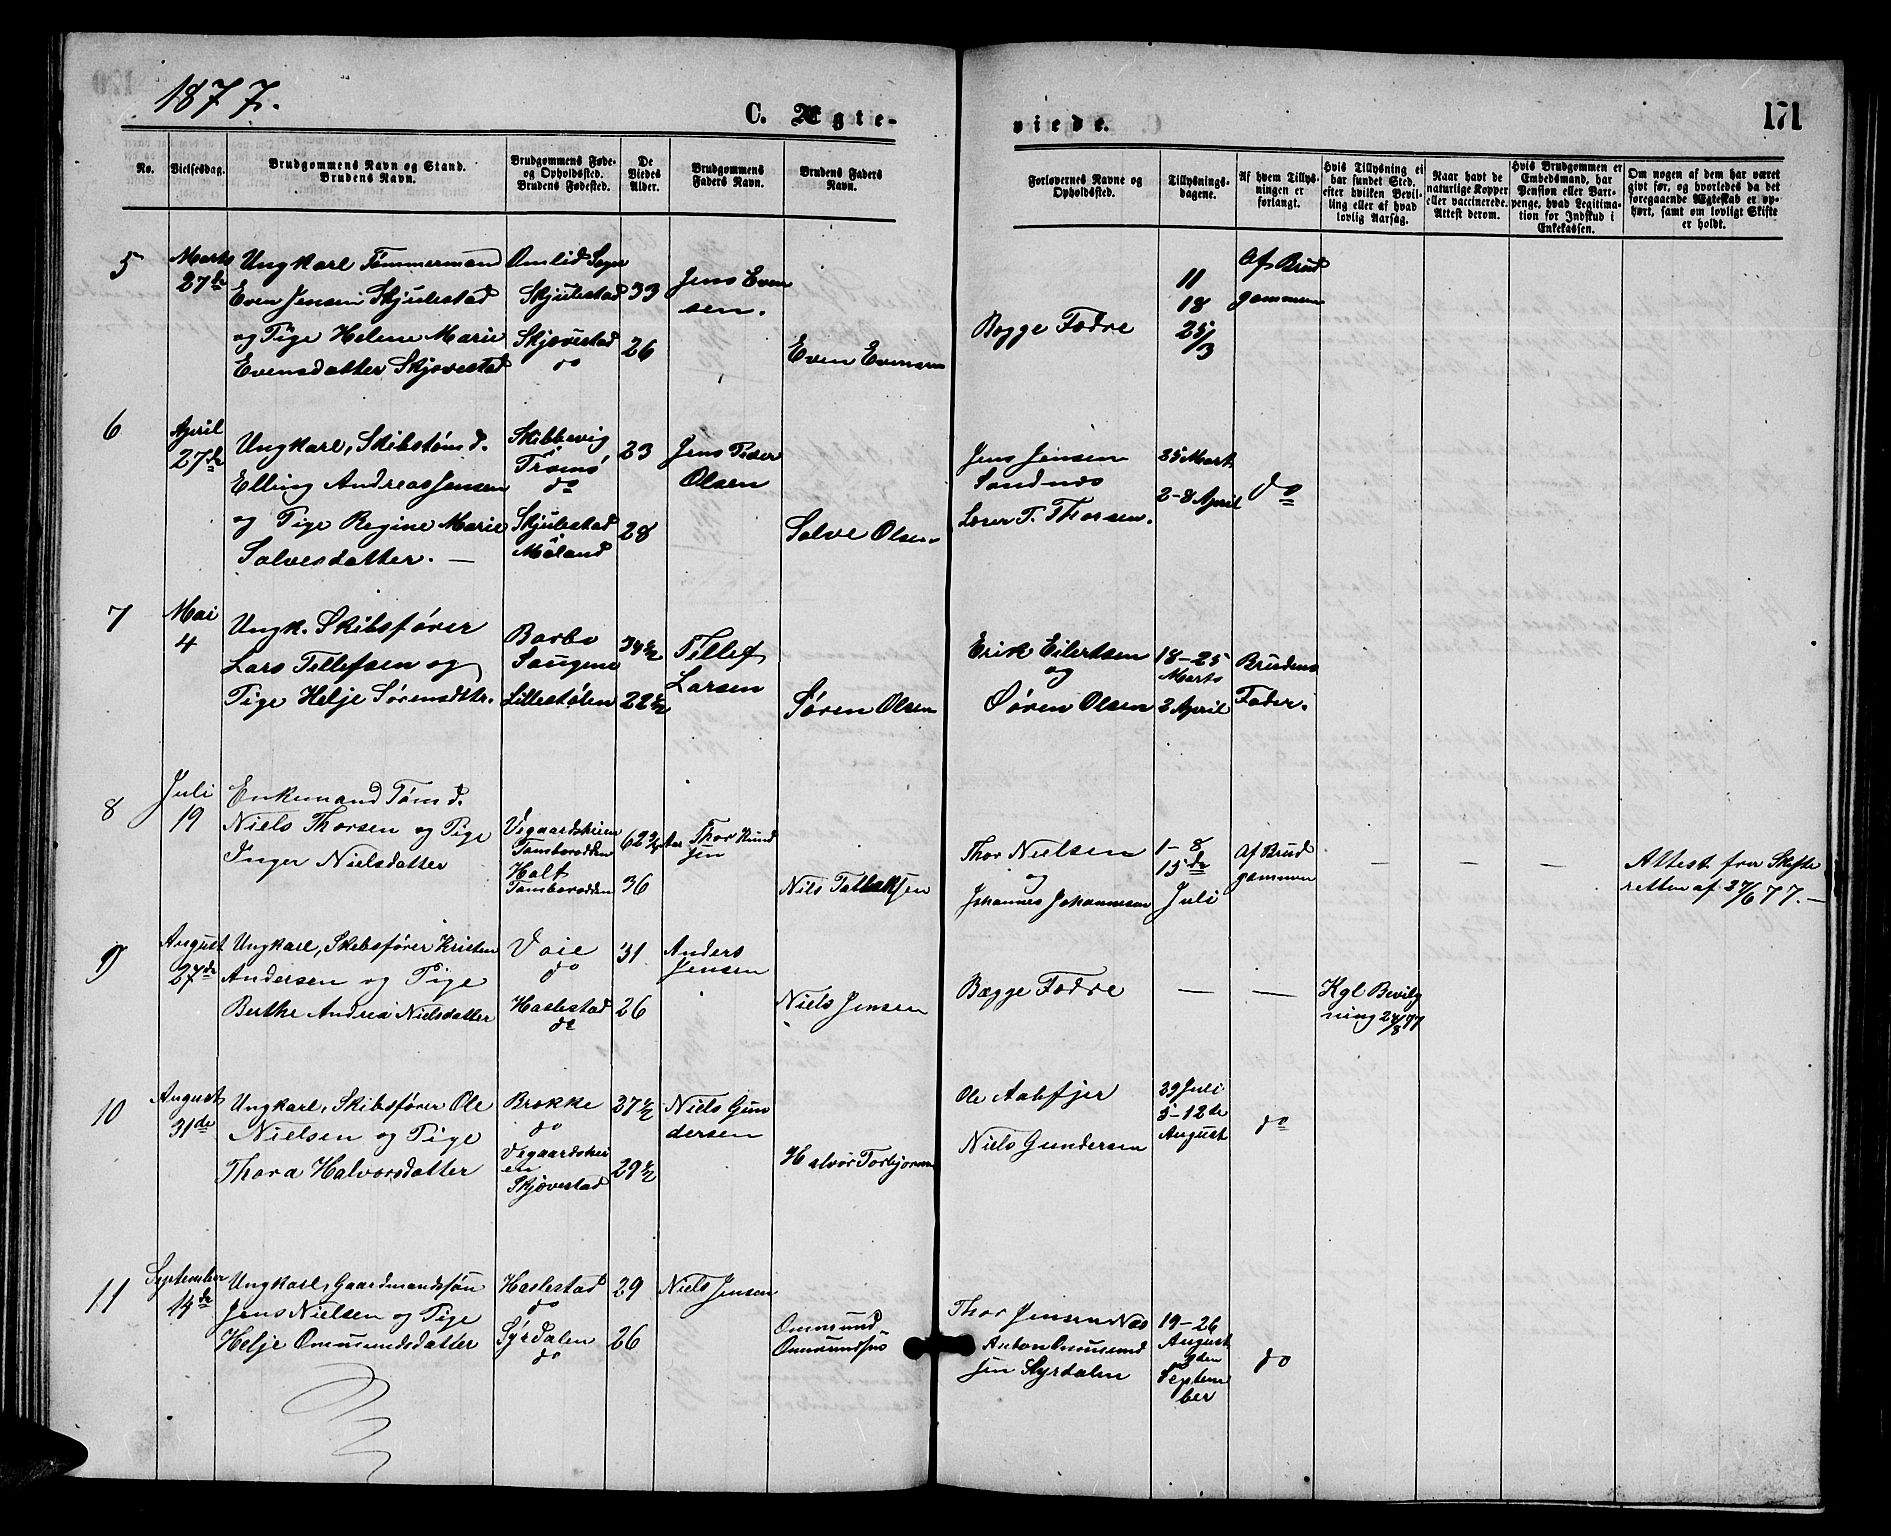 1877.
C. Ægte-
viede.
171
No.
Vielsesdag.
Brudgommens Navn og Stand.
Brudens Navn.
Brudgommens Føde-
og Opholdssted.
Brudens Fødested.
De
Viedes
Alder.
Brudgommens
Faders Navn.
Brudens Faders
Navn.
Forlovernes Navne og
Opholdssted.
Tillysnings-
dagene.
Af hvem Tillys-
ningen er
forlangt.
Hvis Tillysning ei
har fundet Sted,
efter hvilken Bevil-
ling eller af hvad
lovlig Aarsag.
Naar havt de
naturlige Kopper
eller vaccinerede.
Attest derom.
Hvis Brudgommen er
Embedsmand, har
Pension eller Vart-
penge, hvad Legitima-
tion for Indskud i
Enkekassen.
Om nogen af dem har været
givt før, og hvorledes da det
foregaaende Ægteskab er op-
hørt, samt om lovligt Skifte
er holdt.
5
Marts
27de
Ungkarl Tømmermand
Even Jensen Skjulestad
og Pige Helene Marie
Evensdatter Skjovestad
Omlid Sogn
Skjulestad
Skjovestad
do
33
26
Jens Even
sen.
Even Evensen
Begge Fædre
11
18
25/3
Af Brud
gommen
6
April
27de
Ungkarl, Skibstømd.
Elling Andreas Jensen
og Pige Regine Marie
Salvesdatter. —
Skibbevig
Tromø
do
Skjulestad
Møland
23
28
Jens Peder
Olsen
Salve Olsen
Jens Jensen
Sandnæs
T. Thorsen.
25 Mart.
2-8 April
do
7
Mai
4
Ungk. Skibsfører
Lars Tellefsen og
Pige Helje Sørensdtr.
Barbo
Saugene
Lillestølen
34 1/2
22 1/2
Tellef
Larsen
Søren Olsen
Erik Eilertsen
og
Søren Olsen
18-25
Marts
2 April
Brudens
Fader.
8
Juli
19
Enkemand Tømd.
Niels Thorsen og Pige
Inger Nielsdatter
Vegaardsheien
Tamborodden
Holt
Tamborodden
62
36
Thor Knud
sen
Nils Tallaksen
Thor Nielsen
og
Johannes Johannesen
1-8
15de
Juli
Af Brud
gommen
— — —
Attest fra Skifte
retten af 27/6 77. —
9
August
27de
Ungkarl, Skibsfører Kristen
Andersen og Pige
Berthe Andrea Nielsdatter
Voie
do
Haslestad
do
31
26
Anders
Jensen
Niels Jensen
Begge Fædre
— —
Kgl Bevilg
ning 24/8 77
10
August
31de
Ungkarl, Skibsfører Ole
Nielsen og Pige
Thora Halvorsdatter
Brokke
do
Vegaardshei
en
Skjævestad
27 1/2
29 1/2
Niels Gun
dersen
Halvor Torbjornsen
Ole Aabfjer
Niels Gundersen
29 Juli
5-12te
August
do
11
September
14de
Ungkarl, Gaardmandssøn
Jens Nielsen og Pige
Helje Ommundsdatter
Haslestad
do
Syrdalen
do
29
26
Niels Jensen
Ommund
Ommundsen
Thor Jensen Næs
Anton Ommund
sen Syrdalen
19-26
August
2den
Septem
ber
do